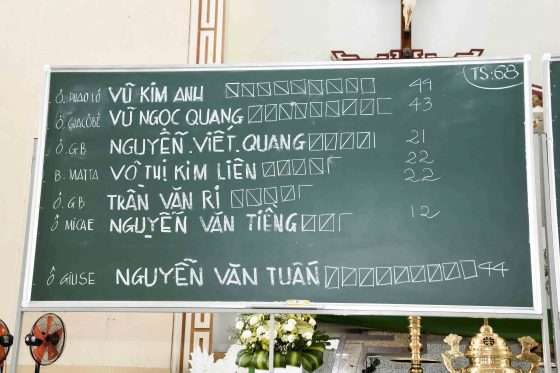 TS:68
Ô. PHAOLÔ VŨ KIM ANH 49
Ô. GIACÔBÊ VŨ NGỌC QUANG 43
Ô. GB NGUYỄN.VIẾT.QUANG 21
B. MATTA VÕ THỊ KIM LIÊN 22
Ô. GB TRẦN VĂN RI 22
Ô MICAE NGUYỄN VĂN TIẾNG 12
Ô GIUSE NGUYỄN VĂN TUẤN 44